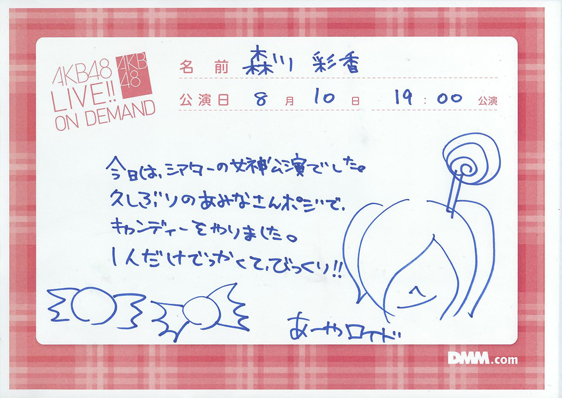 AKB48
LIVE!!
ON DEMAND
AKB
48
名 前 森川 彩香
公演日 8月10日 19:00公演
今日は、シアターの女神公演でした。
久しぶりのあみなさんポジで、
キャンディーをやりました。
1人だけでっかくて、びっくり!!
あーやロイド
DMM.com